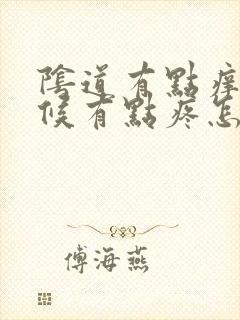 陰道有點痒
候有點疼怎
傅海燕